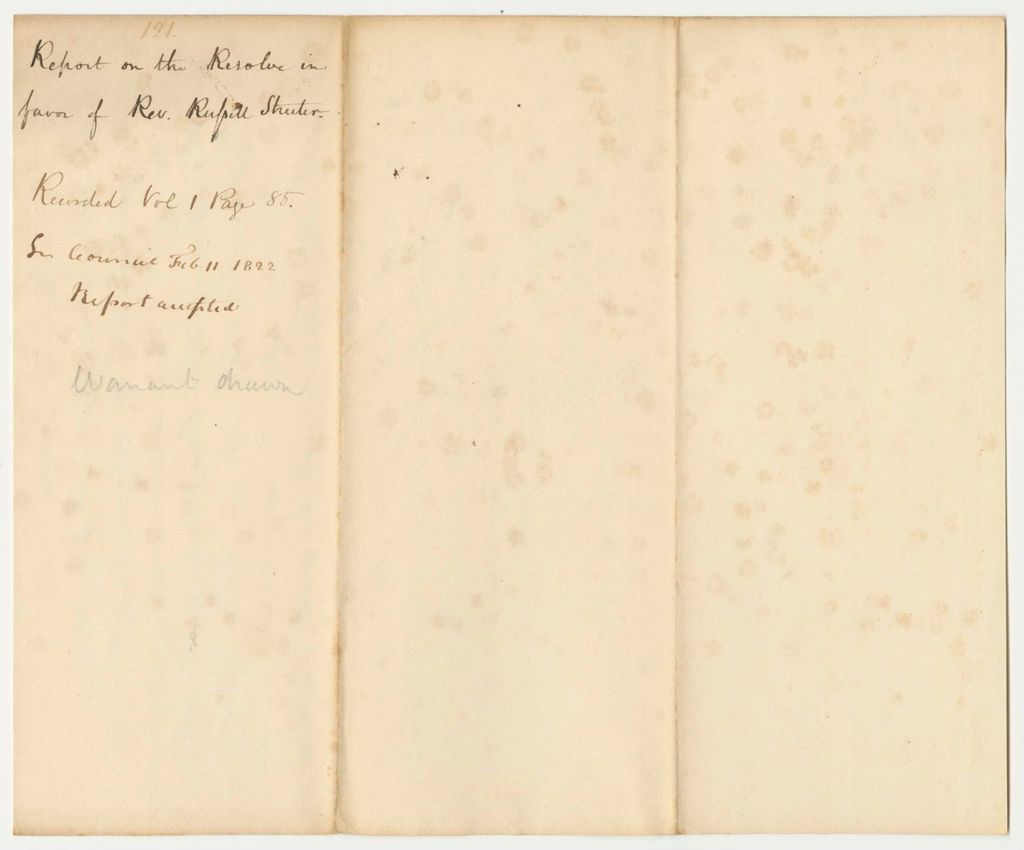 121.
Report on the Resolve in
favor of Rev. Russell Streeter.
Recorded Vol 1 Page 85.
In Council Feb 11 1822
Report accepted
Warrant drawn